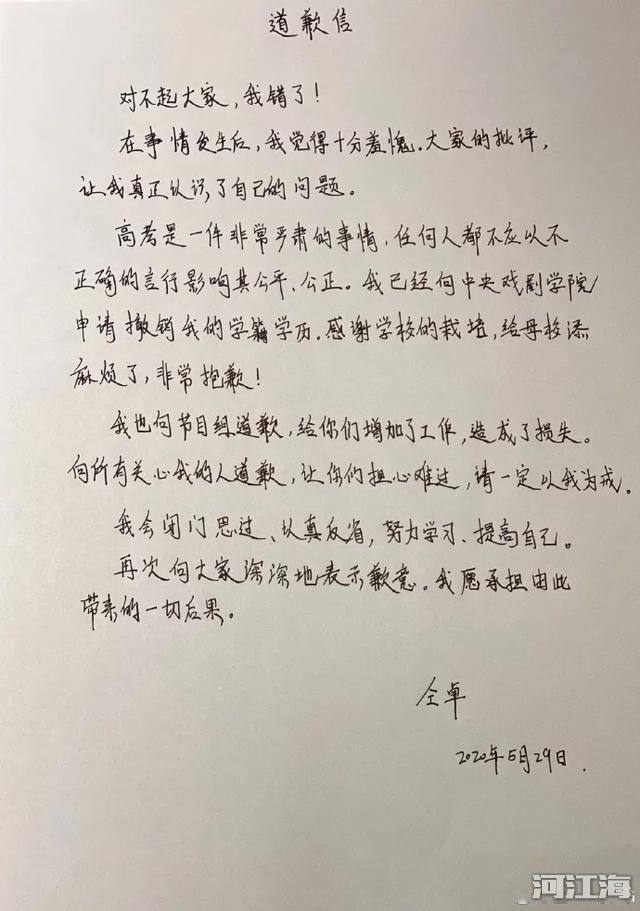 道歉信
对不起大家，我错了！
在事情发生后，我觉得十分羞愧。大家的批评，
让我真正认识了自己的问题。
高考是一件非常严肃的事情，任何人都不应以不
正确的言行影响其公平、公正。我已经向中央戏剧学院
申请撤销我的学籍学历。感谢学校的栽培，给母校添
麻烦了，非常抱歉！
我也向节目组道歉，给你们增加了工作，造成了损失。
向所有关心我的人道歉，让你们担心难过，请一定以我为戒。
我会闭门思过、认真反省，努力学习、提高自己。
再次向大家深深地表示歉意。我愿承担由此
带来的一切后果。
仝卓
2020年5月29日.
河江海